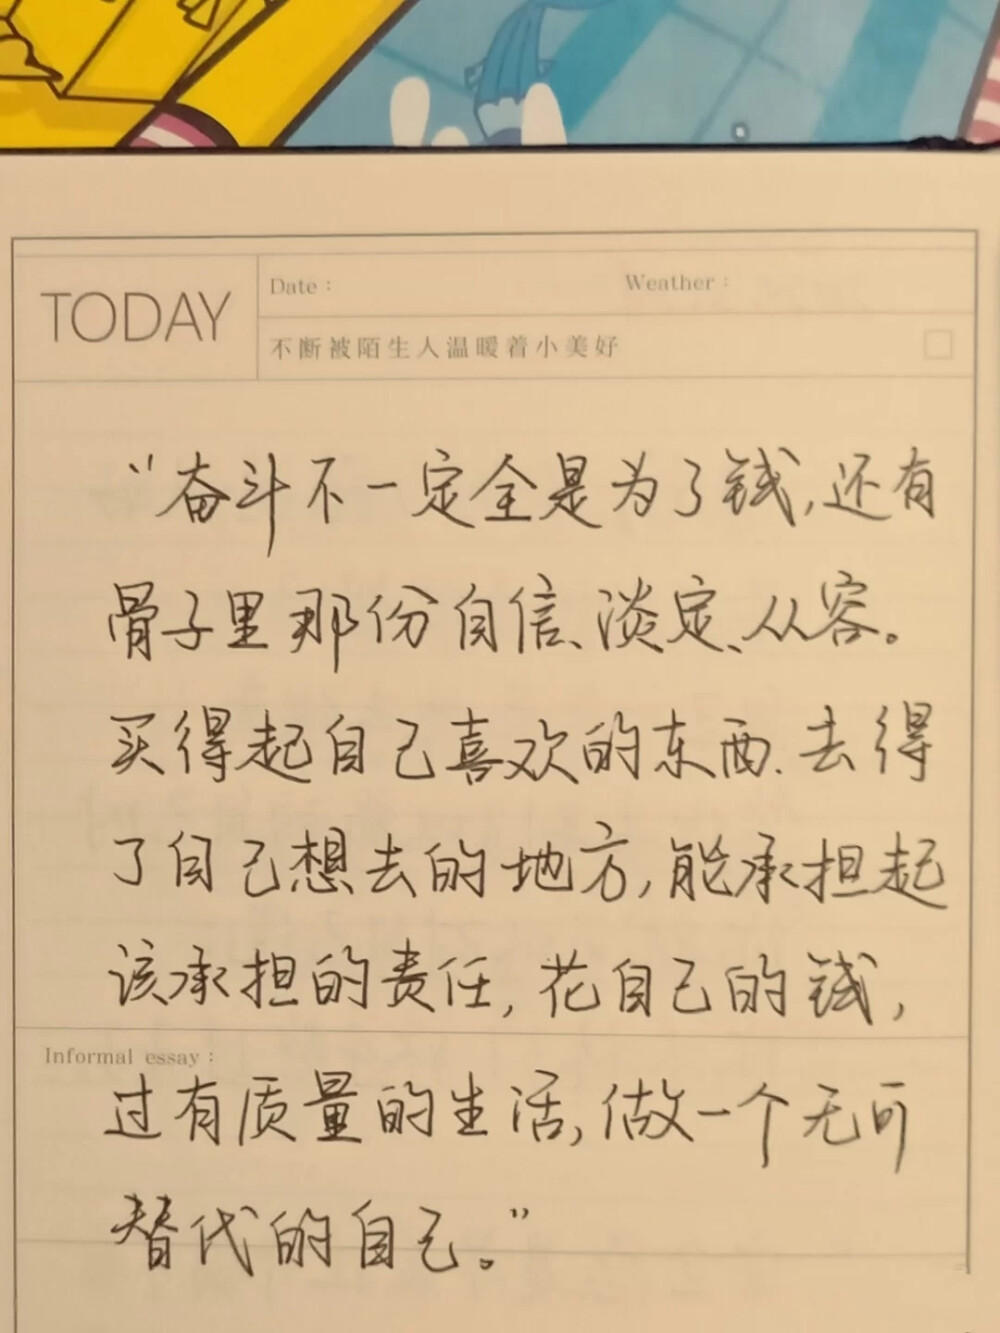 TODAY
Date：
Weather：
不断被陌生人温暖着小美好
“奋斗不一定全是为了钱,还有
骨子里那份自信、淡定、从容。
买得起自己喜欢的东西、去得
了自己想去的地方,能承担起
该承担的责任,花自己的钱,
Informal essay：
过有质量的生活,做一个无可
替代的自己。”